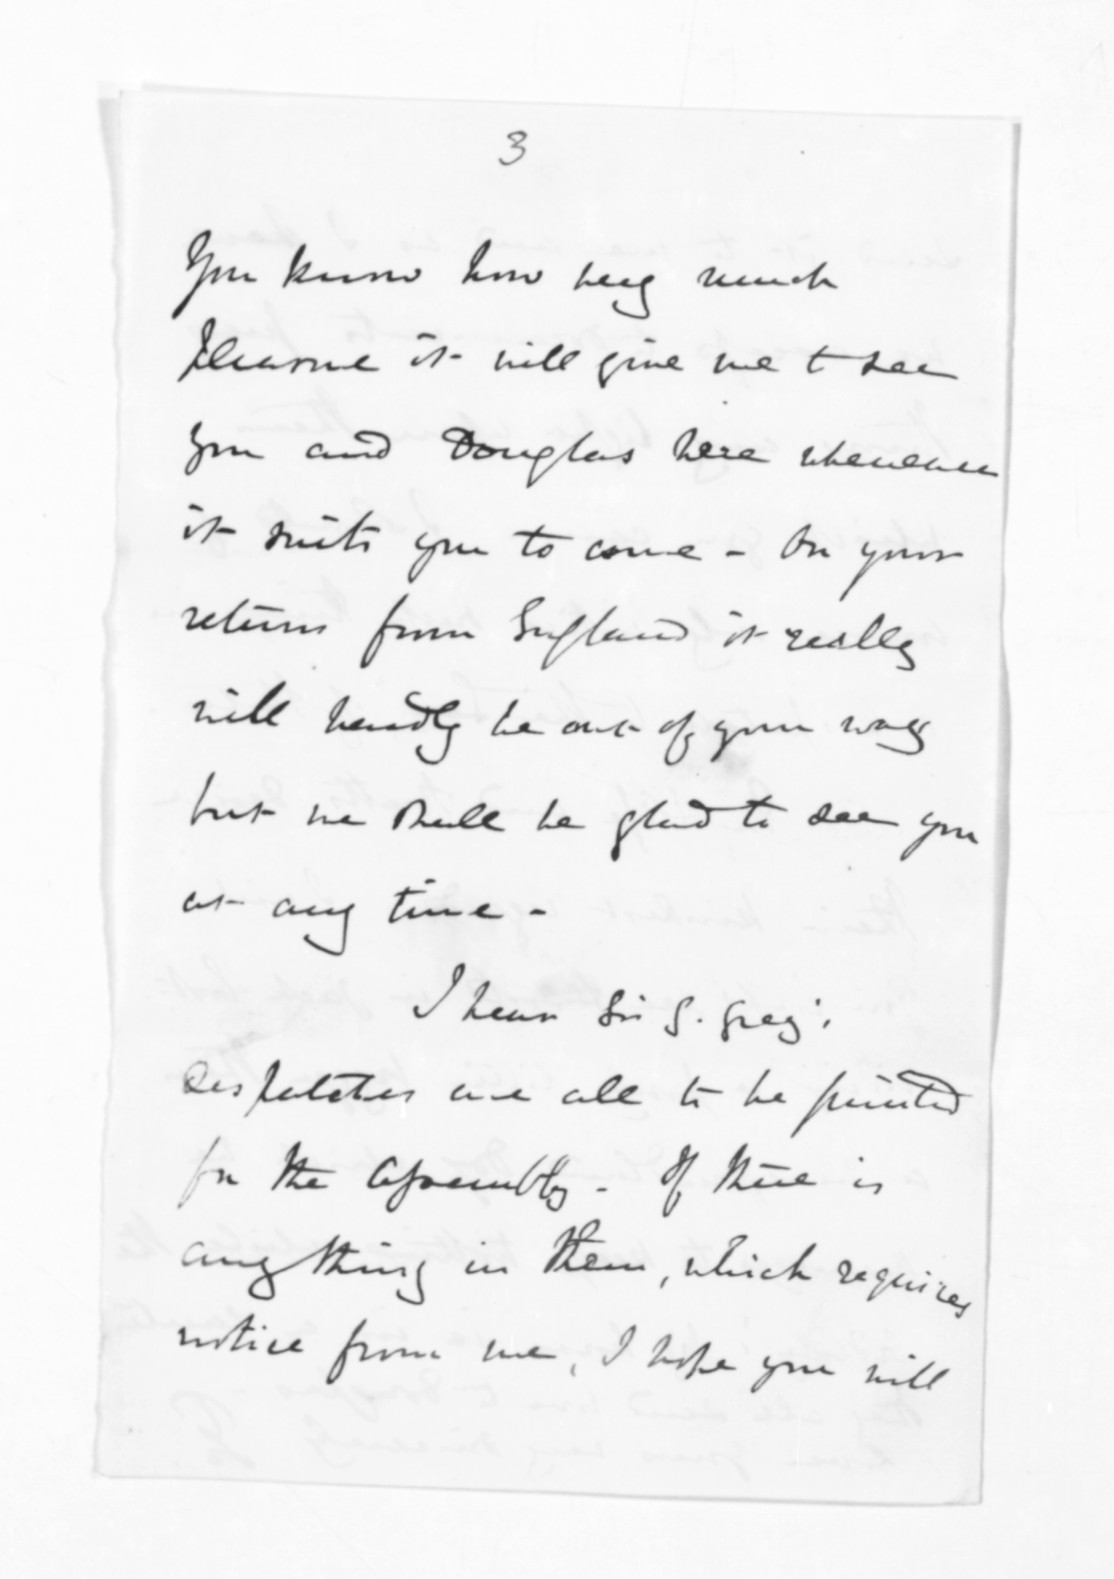 3
You know how very much
pleasure it will give me to see
you and Douglas here whenever
it suits you to come - On your
return from England it really
will hardly be out of your way
but we shall be glad to see you
at any time -
I hear Sir G. Grey's
despatches are all to be printed
for the Assembly - If there is
anything in them, which requires
notice from me, I hope you will